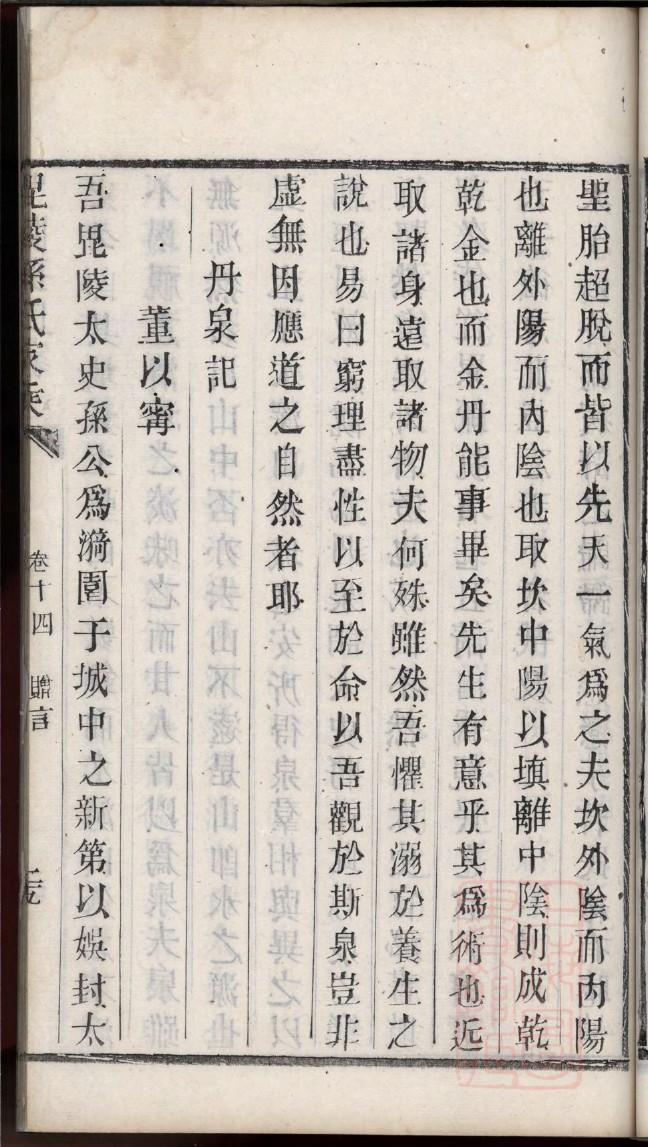 聖胎超脫而皆以先天一氣爲之夫坎外陰而內陽
也離外陽而內陰也取坎中陽以填離中陰則成乾
乾金也而金丹能事畢矣先生有意乎其爲術也近
取諸身遠取諸物夫何殊雖然吾懼其溺於養生之
說也易曰窮理盡性以至於命以吾觀於斯泉豈非
虛無因應道之自然者耶
丹泉記
董以甯
吾毘陵太史孫公爲漪園于城中之新第以娛封太
毘陵孫氏家乘
卷十四
贈言